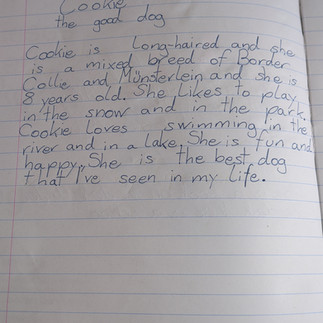 Cookie
the good dog
Cookie is Long-haired and she
is a mixed breed of Border
Colle and Münsterlein and she is
8 years old. She Likes to play
in the snow and in the park.
Cookie Loves swimming in the
river and in a lake. She is fun and
happy. She is the best dog
that I've seen in my life.